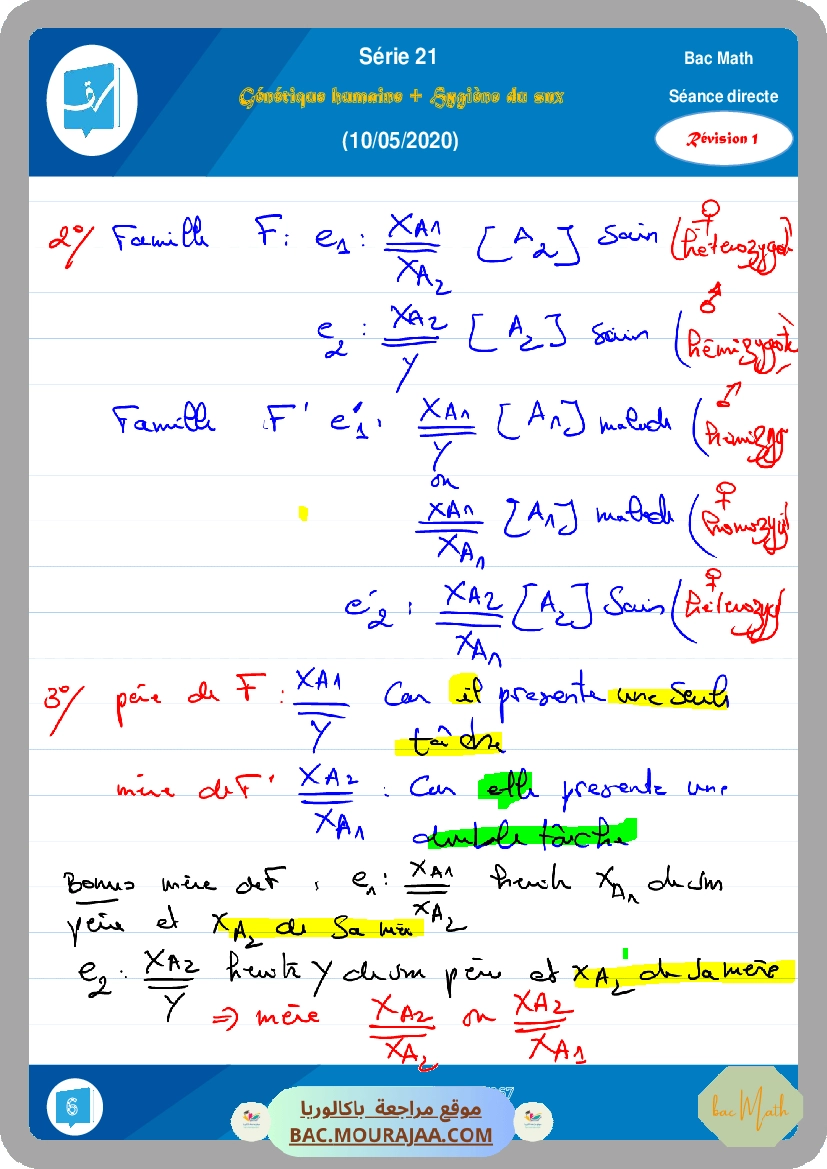 Série 21
Bac Math
Génétique humaine + Hygiène du snx
Séance directe
(10/05/2020)
Révision 1
♀
2°/ Famille F: e1: XA1 [A2] Sain (hétérozygot
XA2
♂
e2: XA2 [A2] sain (hémizygote
Y
♂
Famille F' e'1: XA1 [A1] malade (hémizyg
Y
ou
♀
XA1 [A1] malade (homozyg
XA1
♀
e'2: XA2 [A2] Sain (hétérozyg
XA1
3°/ père de F: XA1 Car il presente une seule
Y tâche
mère de F' XA2 : Car elle presente une
XA1 double tâche
Bonus mère de F: e1: XA1 herite XA1 de son
XA2
père et XA2 de sa mère
e2: XA2 herite Y de son père et XA2 de sa mère
Y
⇒ mère XA2 ou XA2
XA2 XA1
6
موقع مراجعة باكالوريا
BAC.MOURAJAA.COM
bac Math